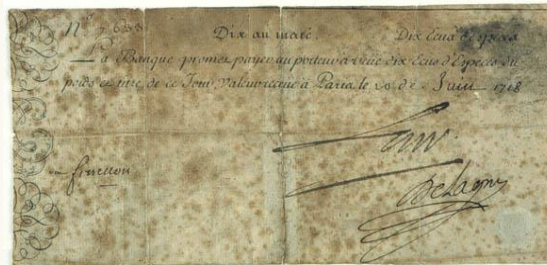 N.º
Dix au marc Dix Ecus d'Especes
La Banque promet payer au porteur à veue dix Ecus d'Especes du
poids et titre de ce Jour, Valeur receue à Paris le de Juin 1718
Delagny